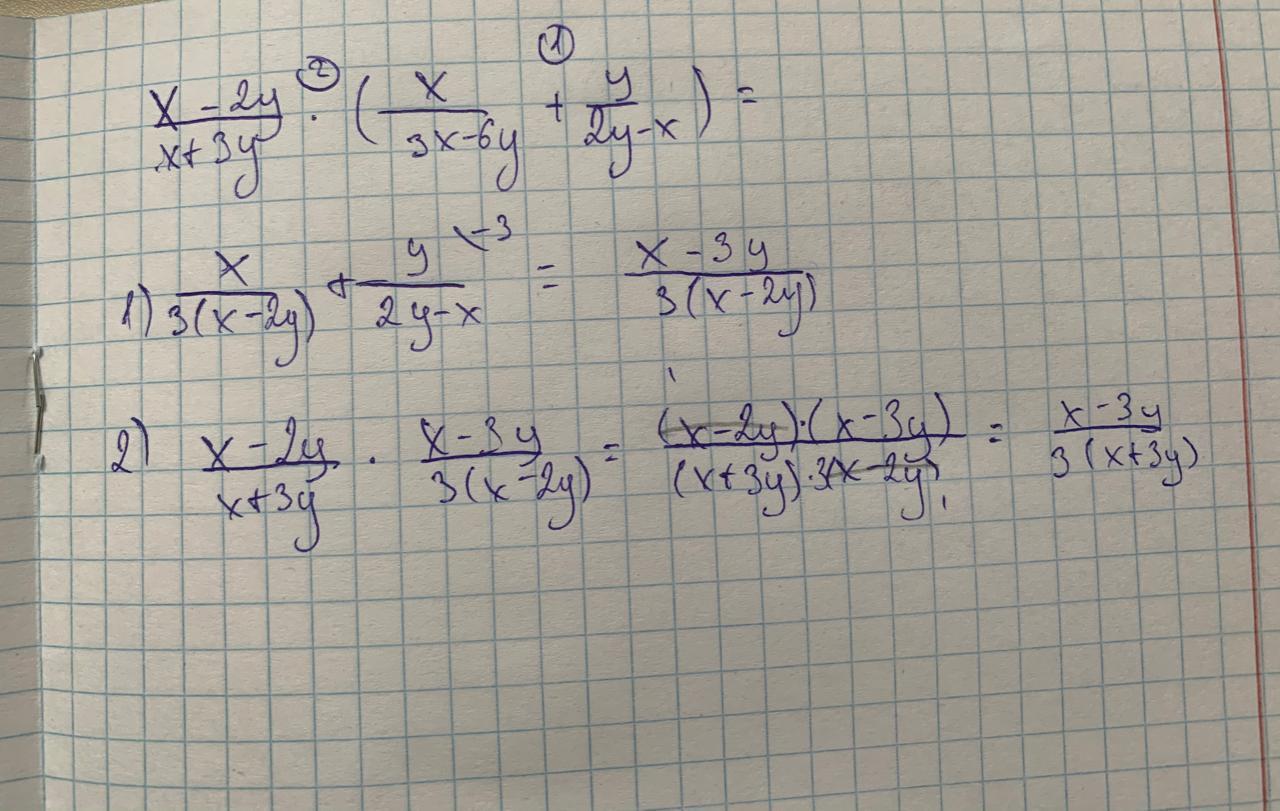 ①
(x - 2y)/(x + 3y) ②· (x/(3x - 6y) + y/(2y - x)) =
1) x/(3(x - 2y)) + y\-3/(2y - x) = (x - 3y)/(3(x - 2y))
2) (x - 2y)/(x + 3y) · (x - 3y)/(3(x - 2y)) = ((x - 2y)·(x - 3y))/((x + 3y)·3(x - 2y)) = (x - 3y)/(3(x + 3y))